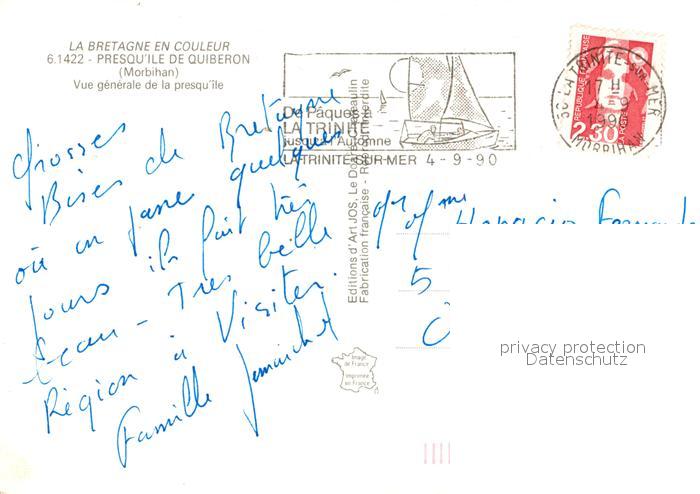 LA BRETAGNE EN COULEUR
6.1422 - PRESQU'ILE DE QUIBERON
(Morbihan)
Vue générale de la presqu'île
De Pâques
LA TRINITÉ
jusqu'à l'Automne
LA TRINITE-SUR-MER 4-9-90
56 LA TRINITE-SUR-MER
17 H
4-9
1990
MORBIHAN
REPUBLIQUE FRANÇAISE
2,30
LA POSTE
Grosses
Bises de Bretagne
où on passe quelques
jours il fait très
beau - Très belle
Région à Visiter.
Famille
Editions d'Art JOS, Le Doaré, Châteaulin
Fabrication française - Reproduction interdite
Mr Mme
5
Image
de France
Imprimée
en France
privacy protection
Datenschutz